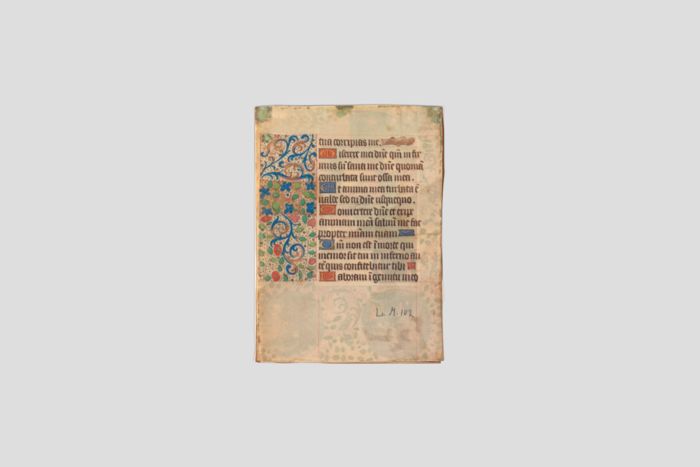 tua corripias me.
Miserere mei dn̄e qm̄ infir
mus sū sana me dn̄e quoniā
conturbata sunt ossa mea.
Et anima mea turbata ē
valde sed tu dn̄e usquequo.
Convertere dn̄e et eripe
animam meā salvū me fac
propter mīam tuam
Qm̄ non est ī morte qui
memor sit tui in inferno au
tē quis confitebitur tibi
Laboravi ī gemitu meo